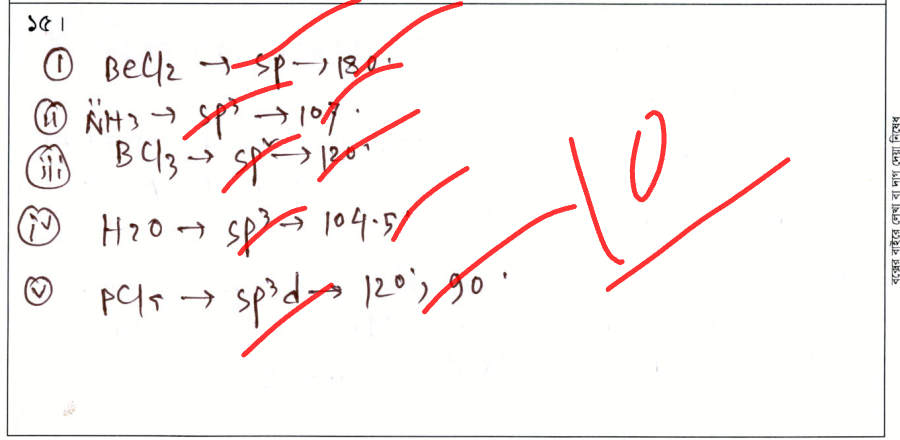 ১৫।
(i) BeCl2 → sp → 180°
(ii) N̈H3 → sp³ → 107°
(iii) BCl3 → sp² → 120°
(iv) H2O → sp³ → 104.5°
(v) PCl5 → sp³d → 120°, 90°
10
বক্সের বাইরে লেখা বা দাগ দেয়া নিষেধ